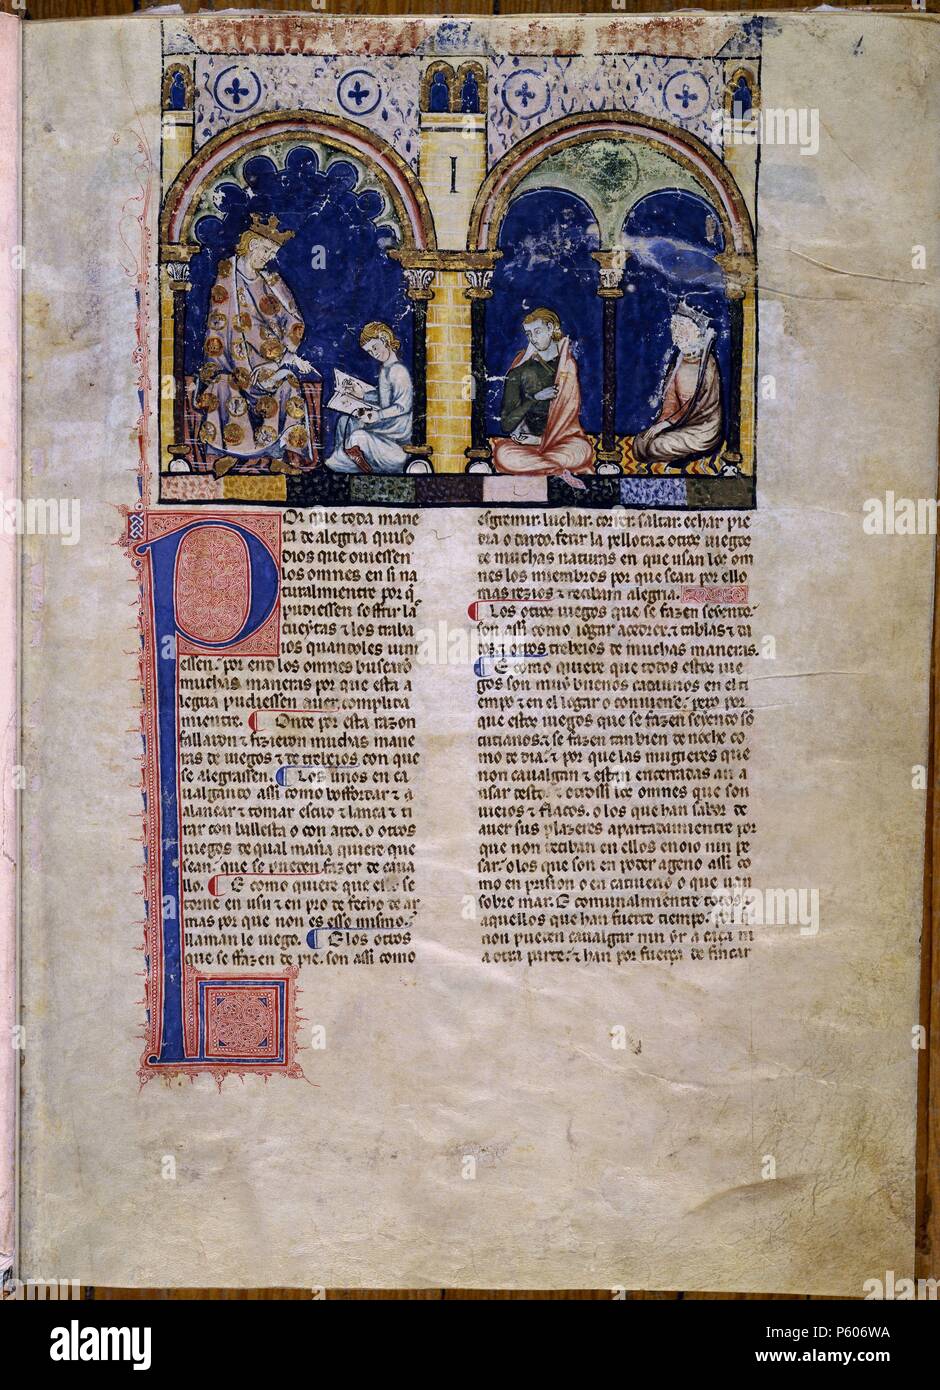 I
Por que toda mane
ra de alegria quiso
dios que ouiessen
los omnes en si na
turalmientre por q̄
pudiessen soffrir las
cueytas ⁊ los traba
ios quandoles uini
essen. por end los omnes buscarõ
muchas maneras por que esta a
legria pudiessen auer complida
mientre. Onde por esta razon
fallaron ⁊ fizieron muchas mane
ras de iuegos ⁊ de trebeios con que
se alegrassen. Los unos en ca
ualgando assi como bofordar ⁊ a
alançar ⁊ tomar escud ⁊ lança ⁊ ti
rar con ballesta o con arco. o otros
iuegos de qual maña quiere que
sean. que se pueden fazer de caua
llo. E como quiere que ello se
torne en usu ⁊ en pro de fecho de ar
mas por que non es esso mismo.
llaman le iuego. E los otros
que se ffazen de pie. son assi como
esgremir. luchar. correr. saltar. echar pie
dra o dardo. ferir la pellota. ⁊ otros iuegos
de muchas naturas en que usan los om
nes los miembros por que sean por ello
mas rezios ⁊ reciban alegria.
Los otros iuegos que se fazen seyendo.
son assi como iogar açedrex. ⁊ tablas ⁊ da
dos. ⁊ otros trebeios de muchas maneras.
E como quiere que todos estos iue
gos son muy buenos cadaunos en el ti
empo ⁊ en el logar o conuiene. pero por
que estos iuegos que se fazen seyendo sõ
cutianos. ⁊ se fazen tan bien de noche co
mo de dia. ⁊ por que las mugieres que
non caualgan ⁊ estan encerradas an a
usar desto. ⁊ otrossi los omnes que son
uieios ⁊ flacos. o los que han sabor de
auer sus plazeres apartadamientre por
que non reciban en ellos enoio nin pe
sar. o los que son en poder ageno assi co
mo en prision o en catiuerio o que uan
sobre mar. E comunalmientre todos
aquellos que han fuerte tiempo. por q̄
non pueden caualgar nin yr a caça ni
a otra parte. ⁊ han por fuerça de fincar
a
alamy
a
a
alamy
a
a
alamy
a
alamy
Image ID: P606WA
www.alamy.com